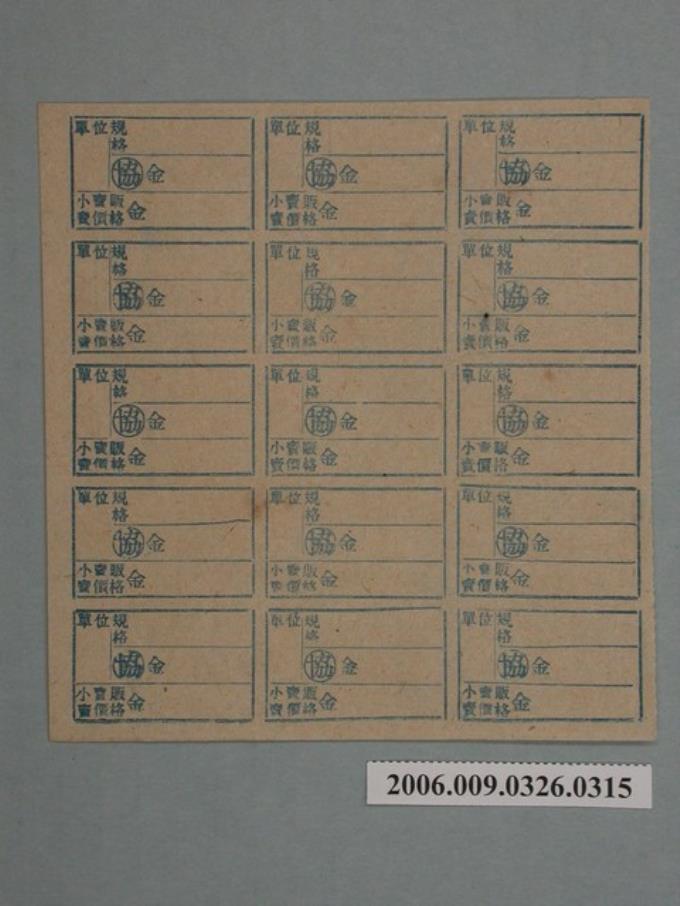 單位規
格
協 金
小賣販
賣價格 金
單位規
格
協 金
小賣販
賣價格 金
單位規
格
協 金
小賣販
賣價格 金
單位規
格
協 金
小賣販
賣價格 金
單位規
格
協 金
小賣販
賣價格 金
單位規
格
協 金
小賣販
賣價格 金
單位規
格
協 金
小賣販
賣價格 金
單位規
格
協 金
小賣販
賣價格 金
單位規
格
協 金
小賣販
賣價格 金
單位規
格
協 金
小賣販
賣價格 金
單位規
格
協 金
小賣販
賣價格 金
單位規
格
協 金
小賣販
賣價格 金
單位規
格
協 金
小賣販
賣價格 金
單位規
格
協 金
小賣販
賣價格 金
單位規
格
協 金
小賣販
賣價格 金
2006.009.0326.0315